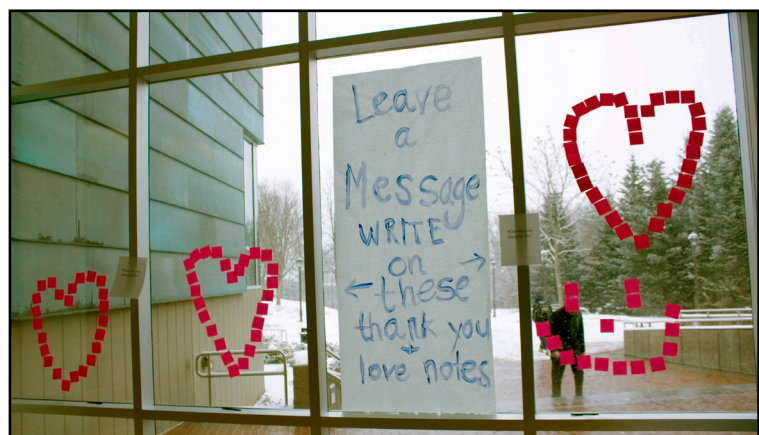 Leave
a
Message
WRITE
on
← these →
thank you
+
love notes